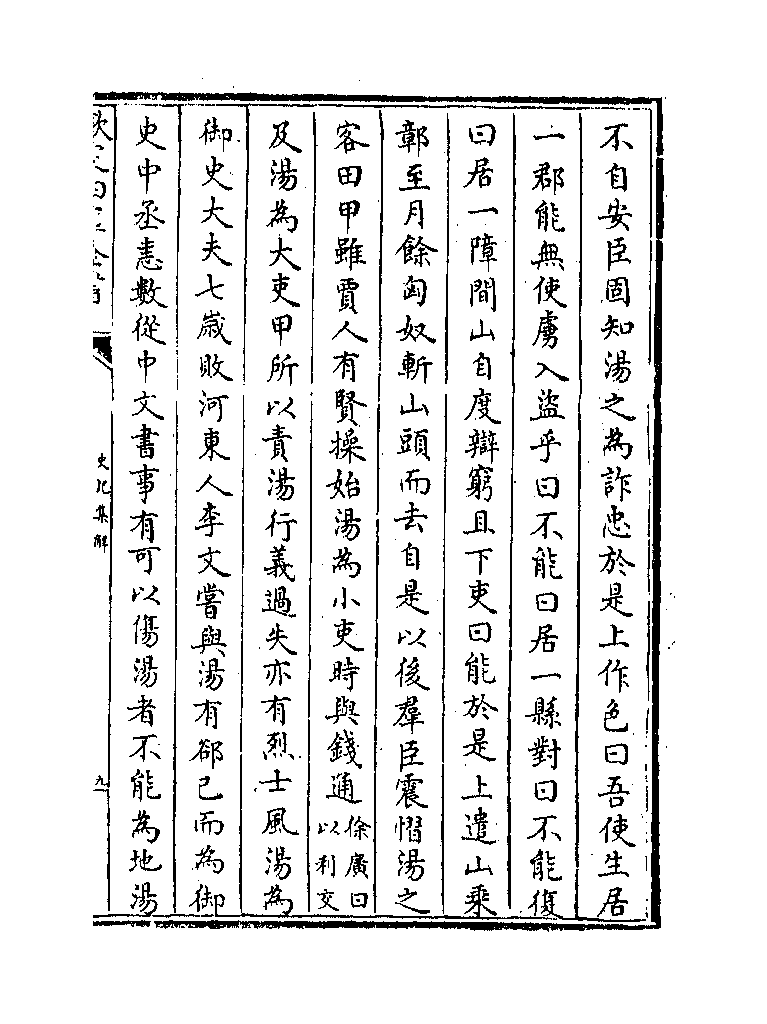 不自安臣固知湯之為詐忠於是上作色曰吾使生居
一郡能無使虜入盜乎曰不能曰居一縣對曰不能復
曰居一障間山自度辯窮且下吏曰能於是上遣山乗
鄣至月餘匈奴斬山頭而去自是以後羣臣震慴湯之
客田甲雖賈人有賢操始湯為小吏時與錢通徐廣曰以利交
及湯為大吏甲所以責湯行義過失亦有烈士風湯為
御史大夫七嵗敗河東人李文嘗與湯有郤已而為御
史中丞恚數從中文書事有可以傷湯者不能為地湯
欽定四庫全書
史記集解
九